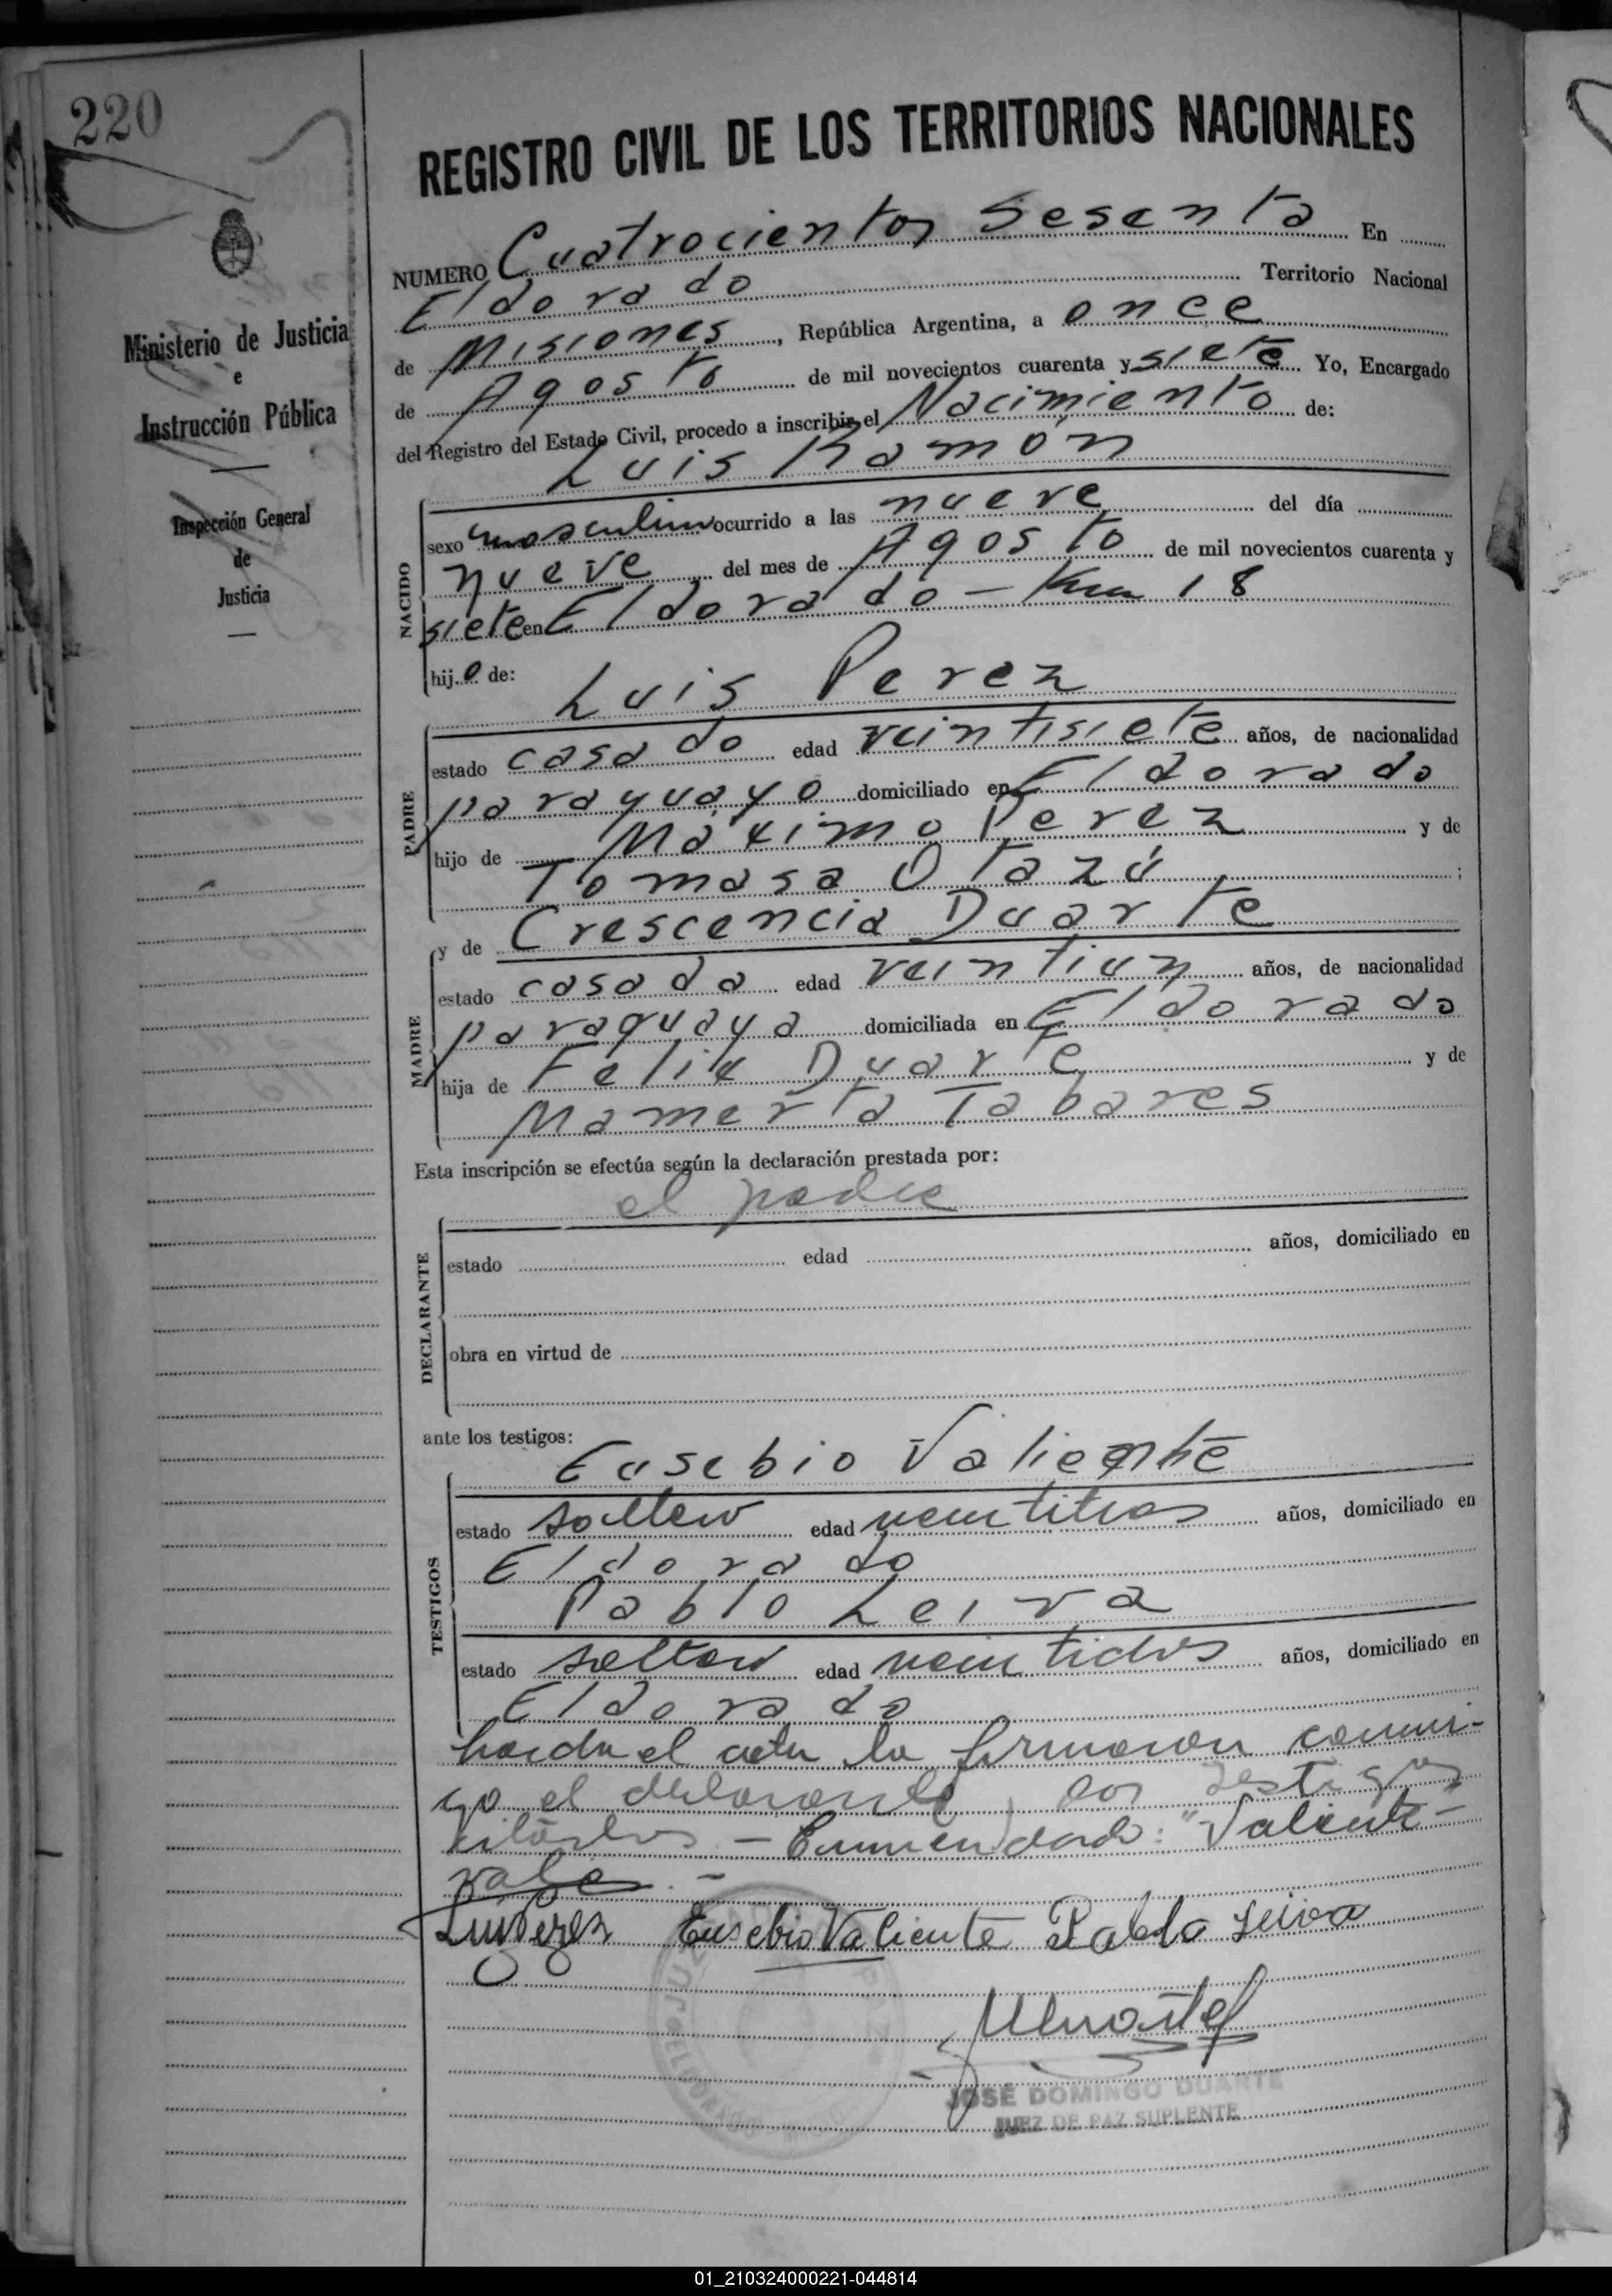 220
REGISTRO CIVIL DE LOS TERRITORIOS NACIONALES
Ministerio de Justicia
e
Instrucción Pública
Inspección General
de
Justicia
NUMERO Cuatrocientos Sesenta En
Eldorado Territorio Nacional
de Misiones, República Argentina, a once
de Agosto de mil novecientos cuarenta y siete Yo, Encargado
del Registro del Estado Civil, procedo a inscribir el Nacimiento de:
Luis Ramón
NACIDO
sexo masculino ocurrido a las nueve del día
nueve del mes de Agosto de mil novecientos cuarenta y
siete en Eldorado - Km 18
hijo de:
Luis Perez
PADRE
estado casado edad veintisiete años, de nacionalidad
paraguayo domiciliado en Eldorado
hijo de Máximo Perez y de
Tomasa Otazú ;
y de Crescencia Duarte
MADRE
estado casada edad veintiun años, de nacionalidad
paraguaya domiciliada en Eldorado
hija de Felix Duarte y de
Mamerta Tabares
Esta inscripción se efectúa según la declaración prestada por:
el padre
DECLARANTE
estado edad años, domiciliado en
obra en virtud de
ante los testigos:
Eusebio Valiente
TESTIGOS
estado soltero edad veintitres años, domiciliado en
Eldorado
Pablo Leiva
estado soltero edad veintidos años, domiciliado en
Eldorado
el acta la firmaron conmi-
go el declarante, los testigos
- Enmendado: "Valiente -
vale. -
Luis Perez Eusebio Valiente Pablo Leiva
JOSÉ DOMINGO DUARTE
JUEZ DE PAZ SUPLENTE
01_210324000221-044814